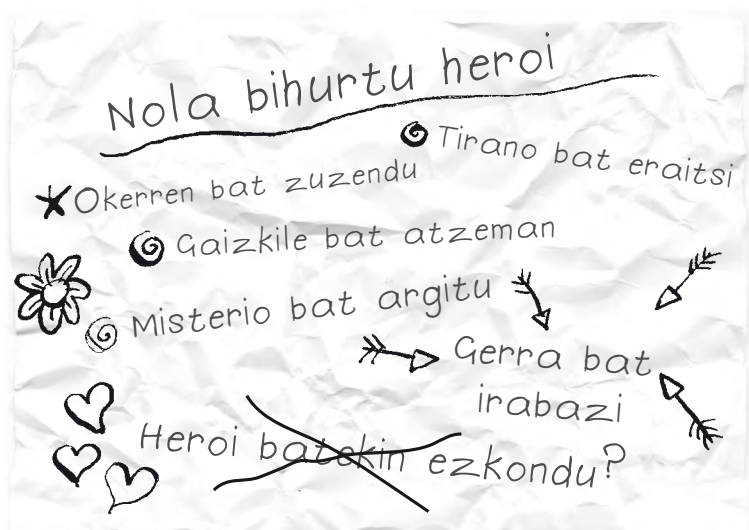 Nola bihurtu heroi
Tirano bat eraitsi
Okerren bat zuzendu
Gaizkile bat atzeman
Misterio bat argitu
Gerra bat
irabazi
Heroi batekin ezkondu?